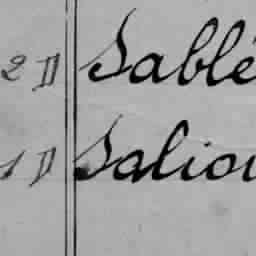 2 D Sablé
1 D Saliou